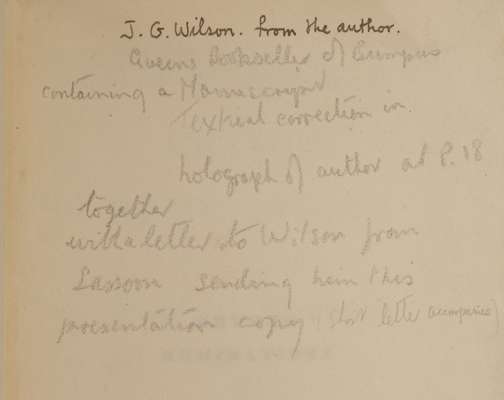 J. G. Wilson. from the author.
Queens Bookseller of Bumpus
containing a Manuscript
Textual correction in
holograph of author at P. 18
together
with a letter to Wilson from
Sassoon sending him this
presentation copy (letter accompanies)